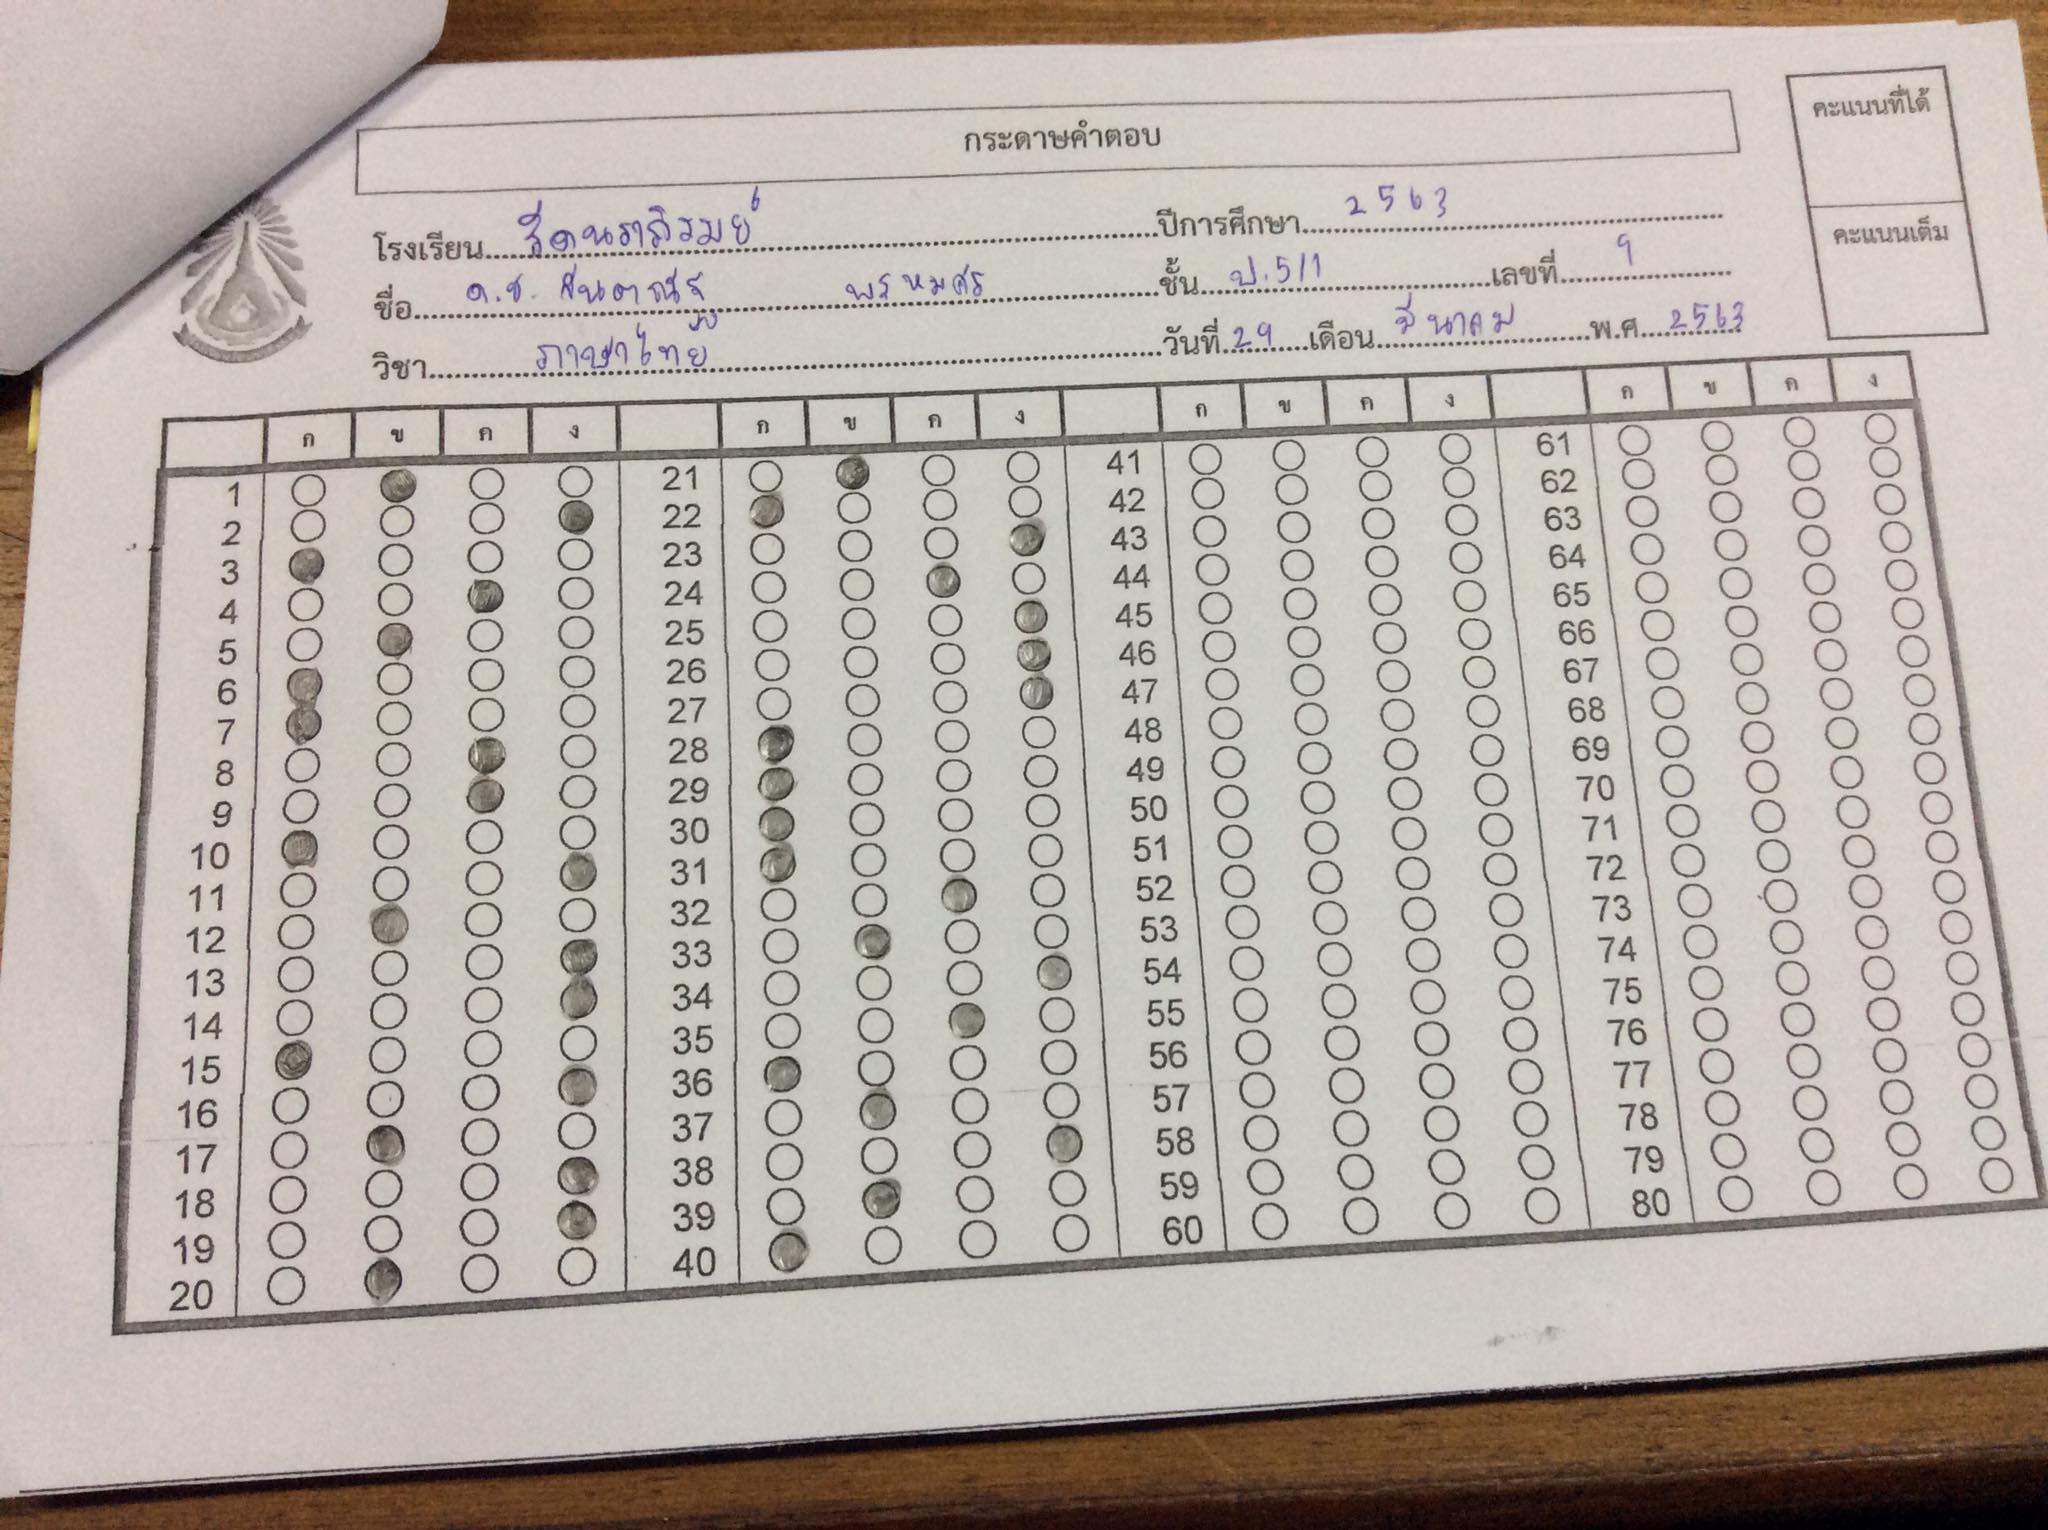 กระดาษคำตอบ
คะแนนที่ได้
คะแนนเต็ม
โรงเรียน ปีการศึกษา 2563
ชื่อ ด.ช. พรหมศร ชั้น ป.5/1 เลขที่ 9
วิชา ภาษาไทย วันที่ 29 เดือน มีนาคม พ.ศ 2563
ก ข ค ง ก ข ค ง ก ข ค ง ก ข ค ง
1 21 41 61
2 22 42 62
3 23 43 63
4 24 44 64
5 25 45 65
6 26 46 66
7 27 47 67
8 28 48 68
9 29 49 69
10 30 50 70
11 31 51 71
12 32 52 72
13 33 53 73
14 34 54 74
15 35 55 75
16 36 56 76
17 37 57 77
18 38 58 78
19 39 59 79
20 40 60 80